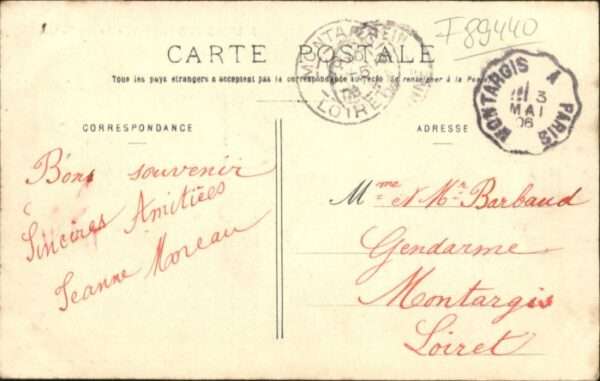 F89440
CARTE POSTALE
Tous les pays étrangers n'acceptent pas la correspondance au recto (Se renseigner à la Poste)
CORRESPONDANCE
ADRESSE
MONTARGIS
LOIRET
MONTARGIS A PARIS
3
MAI
06
Bons souvenir
Sincères Amitiées
Jeanne Moreau
Mme et Mr Barbaud
Gendarme
Montargis
Loiret